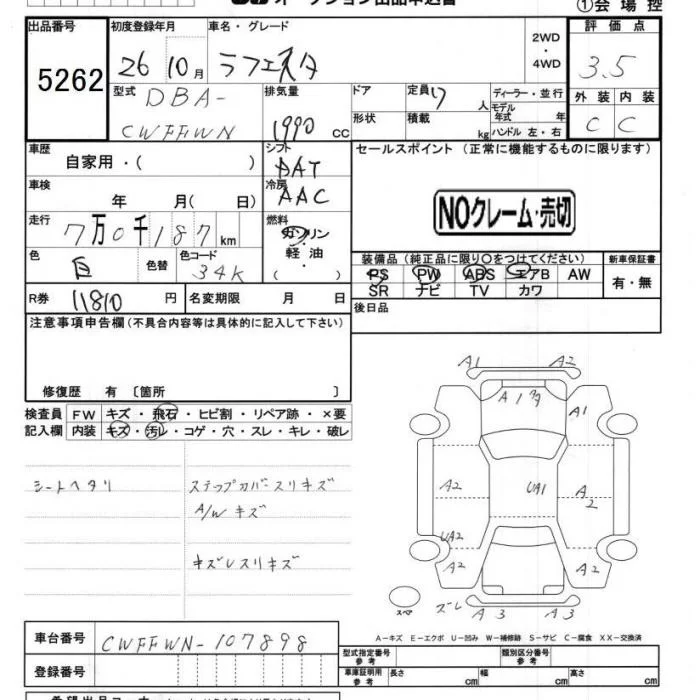 オークション出品申込書
①会場控
出品番号 初度登録年月 車名・グレード 2WD ・ 4WD 評価点
5262 26 10月 ラフェスタ 3.5
型式 DBA- 排気量 ドア 定員 7 人 ディーラー・並行 外装 内装
CWFFWN 1990 cc 形状 積載 kg モデル年式 年 C C
ハンドル 左・右
車歴 シフト セールスポイント (正常に機能するものに限ります)
自家用・( ) DAT
車検 年 月( 日) 冷房 AAC
NOクレーム・売切
走行 7万0千187km 燃料 ガソリン・軽油・( )
色 白 色替 色コード 34K
装備品 (純正品に限り○をつけてください) 新車保証書
PS PW ABS エアB AW 有・無
SR ナビ TV カワ
R券 11810 円 名変期限 月 日 後日品
注意事項申告欄 (不具合内容等は具体的に記入して下さい)
修復歴 有 〔箇所 〕
検査員 FW キズ・飛石・ヒビ割・リペア跡・×要
記入欄 内装 キズ・汚レ・コゲ・穴・スレ・キレ・破レ
シートヘタリ ステップカバースリキズ
A/W キズ
キズレスリキズ
A1 A2
A1
A1
A2 UA1 A2
UA2
A2 A2
スペア ズレ A3 A3
A−キズ E−エクボ U−凹み W−補修跡 S−サビ C−腐食 XX−交換済
車台番号 CWFFWN-107898
型式指定番号 参考 類別区分番号 参考
登録番号 車庫証明用 参考 長さ cm 幅 cm 高さ cm
希望出品コーナー